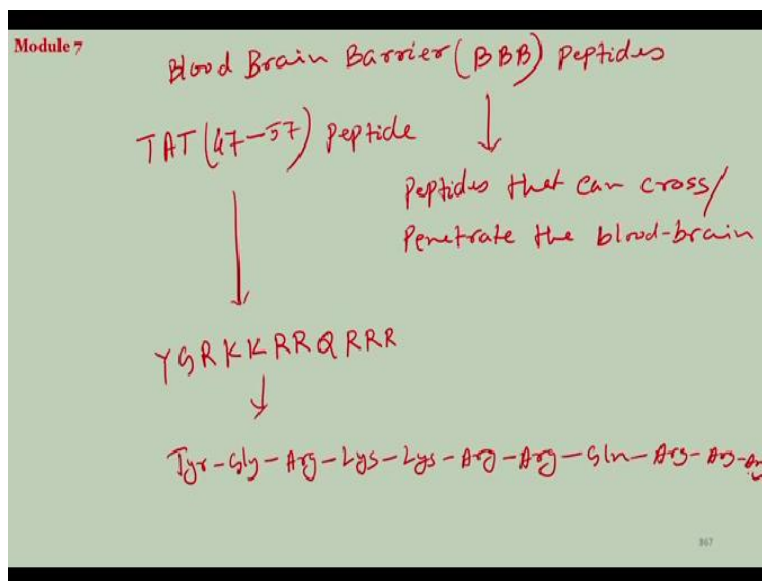 Module 7
Blood Brain Barrier (BBB) Peptides
TAT (47-57) Peptide
Peptides that can cross/
Penetrate the blood-brain
YGRKKRRQRRR
Tyr-Gly-Arg-Lys-Lys-Arg-Arg-Gln-Arg-Arg-Arg
867